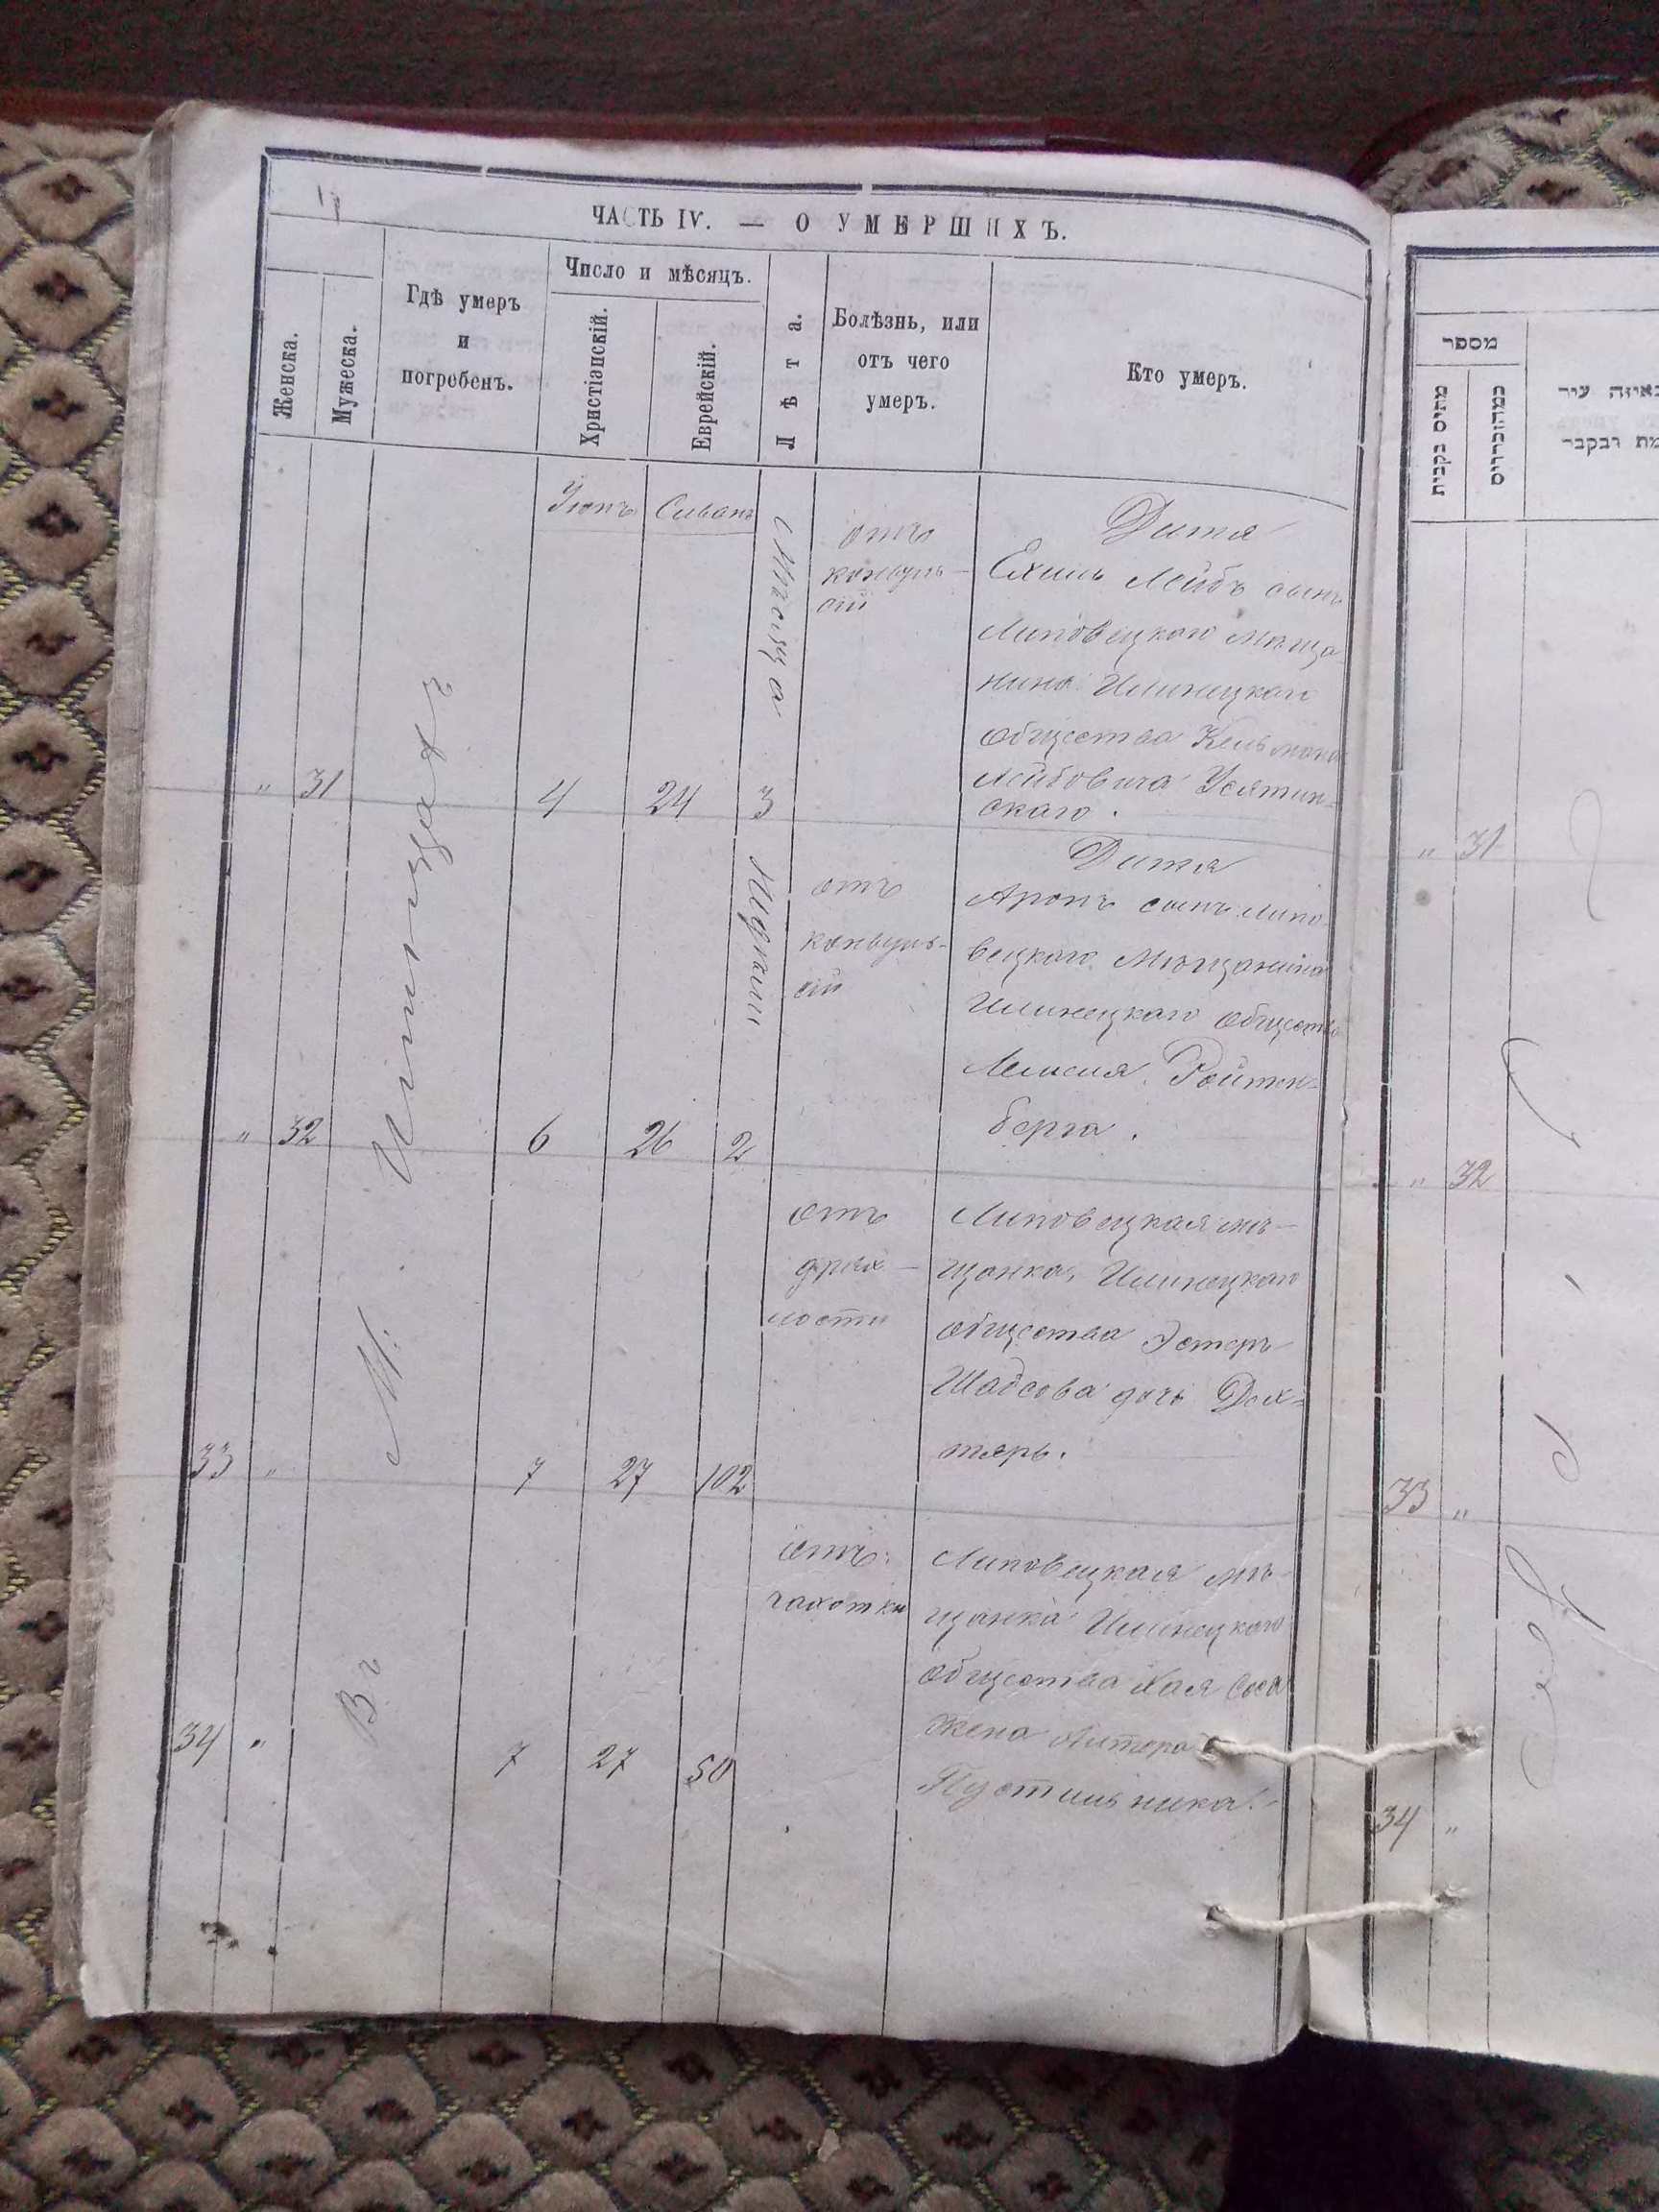 ЧАСТЬ IV. — О УМЕРШИХЪ.
Женска.
Мужеска.
Гдѣ умеръ
и
погребенъ.
Число и мѣсяцъ.
Христіанскій.
Еврейскій.
Лѣта.
Болѣзнь, или
отъ чего
умеръ.
Кто умеръ.
Въ М. Илинцахъ
Іюнь Сиванъ
" 31 4 24 3 Мѣсяца
отъ
конвуль-
сій
Дитя
Ехиль Лейбъ сынъ
Липовецкаго мѣща-
нина Илинецкаго
общества Кельмана
Лейбовича Усятин-
скаго.
" 32 6 26 2
отъ
конвуль-
сій
Дитя
Аронъ сынъ Липо-
вецкаго Мѣщанина
Илинецкаго общества
Ройтен-
берга.
33 " 7 27 102
отъ
дрях-
лости
Липовецкая мѣ-
щанка, Илинецкаго
общества Эстеръ
дочь Дех-
тярь.
34 " 7 27 50
отъ
чахотки
Липовецкая мѣ-
щанка Илинецкаго
общества Хая Сося
жена Алтера
Пустильника.
מספר
" 31
" 32
33 "
34 "